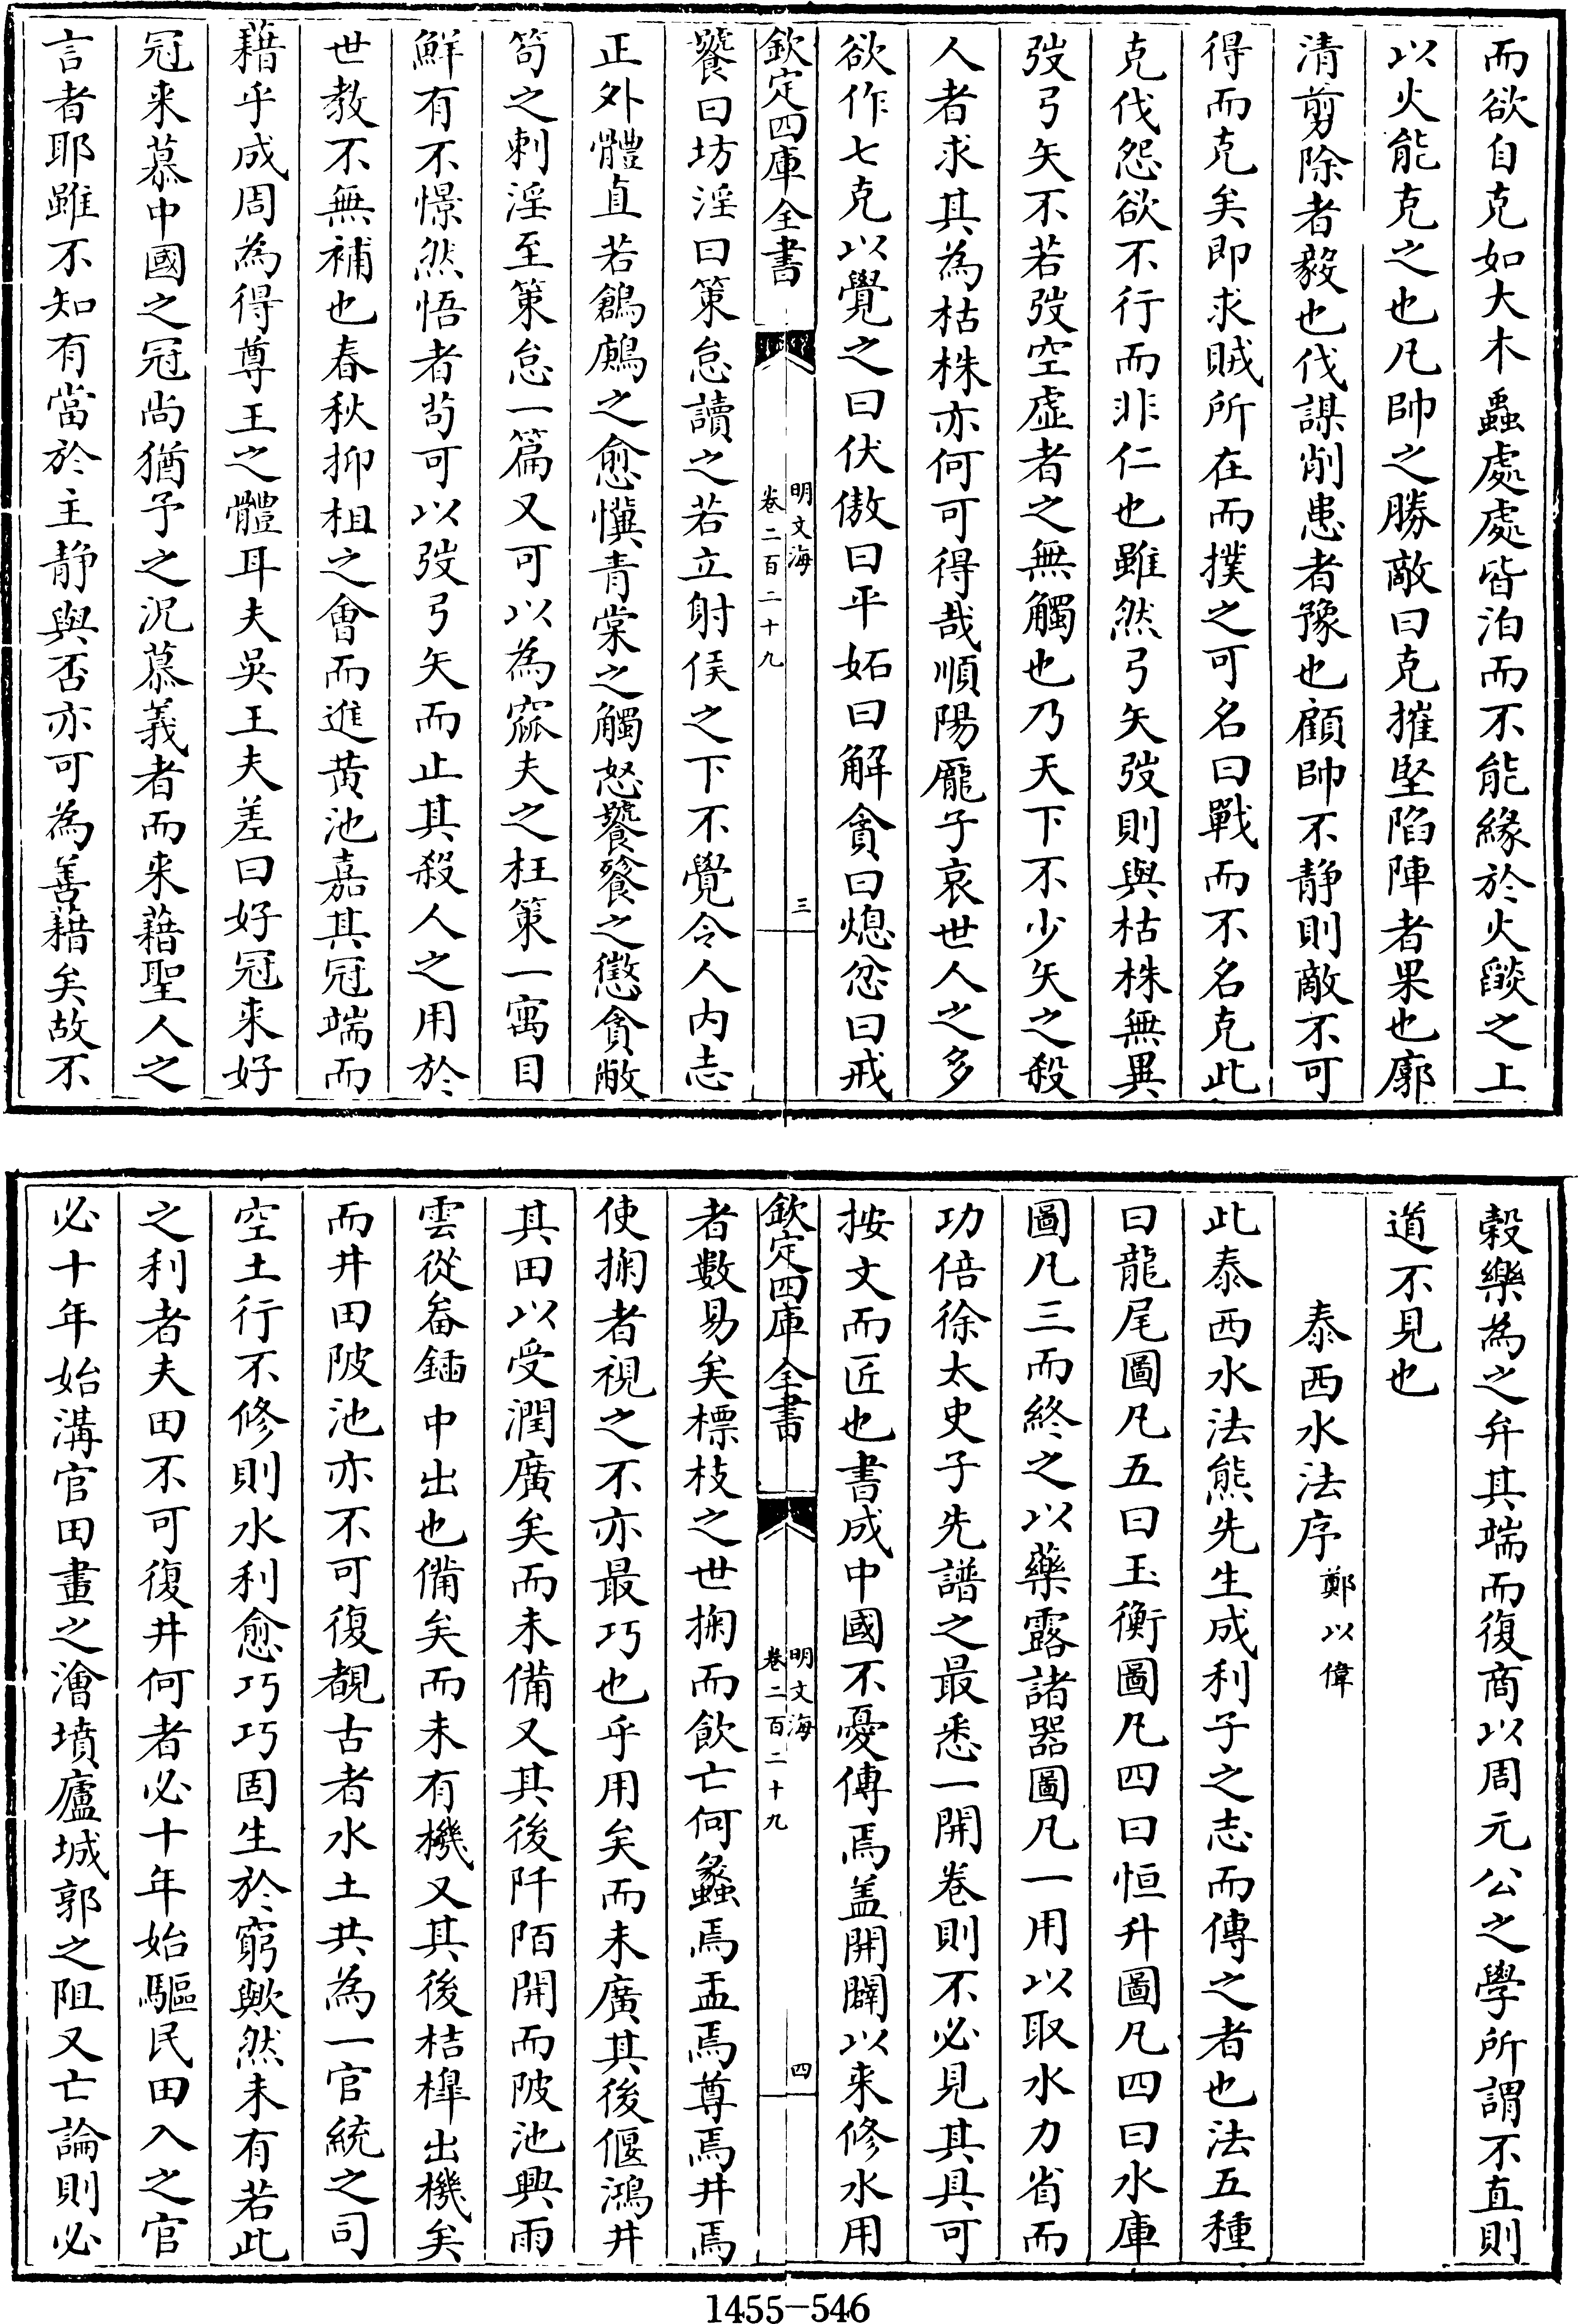 而欲自克如大木蟲處處皆泊而不能緣於火燄之上
以火能克之也凡帥之勝敵曰克摧堅陷陣者果也廓
清剪除者毅也伐謀削患者豫也顧帥不静則敵不可
得而克矣即求賊所在而撲之可名曰戰而不名克此
克伐怨欲不行而非仁也雖然弓矢弢則與枯株無異
弢弓矢不若弢空虛者之無觸也乃天下不少矢之殺
人者求其為枯株亦何可得哉順陽龎子哀世人之多
欲作七克以覺之曰伏傲曰平妬曰解貪曰熄忿曰戒
欽定四庫全書
明文海
卷二百二十九
三
饕曰坊淫曰策怠讀之若立射侯之下不覺令人内志
正外體直若鶬鷉之愈懻青棠之觸怒饕餮之懲貪敝
笱之刺淫至策怠一篇又可以為窳夫之枉策一寓目
鮮有不憬然悟者茍可以弢弓矢而止其殺人之用於
世教不無補也春秋抑柤之會而進黄池嘉其冠端而
藉乎成周為得尊王之體耳夫吳王夫差曰好冠来好
冠来慕中國之冠尚猶予之况慕義者而来藉聖人之
言者耶雖不知有當於主静與否亦可為善藉矣故不
穀樂為之弁其端而復商以周元公之學所謂不直則
道不見也
泰西水法序鄭以偉
此泰西水法熊先生成利子之志而傳之者也法五種
曰龍尾圖凡五曰玉衡圖凡四曰恒升圖凡四曰水庫
圖凡三而終之以藥露諸器圖凡一用以取水力省而
功倍徐太史子先譜之最悉一開卷則不必見其具可
按文而匠也書成中國不憂傳焉盖開闢以来修水用
欽定四庫全書
明文海
卷二百二十九
四
者數易矣標枝之世掬而飲亡何蠡焉盂焉尊焉井焉
使掬者視之不亦最巧也乎用矣而未廣其後偃鴻井
其田以受潤廣矣而未備又其後阡陌開而陂池興雨
雲從畚鍤中出也備矣而未有機又其後桔槹出機矣
而井田陂池亦不可復覩古者水土共為一官統之司
空土行不修則水利愈巧巧固生於窮歟然未有若此
之利者夫田不可復井何者必十年始驅民田入之官
必十年始溝官田畫之澮墳廬城郭之阻又亡論則必
1455-546